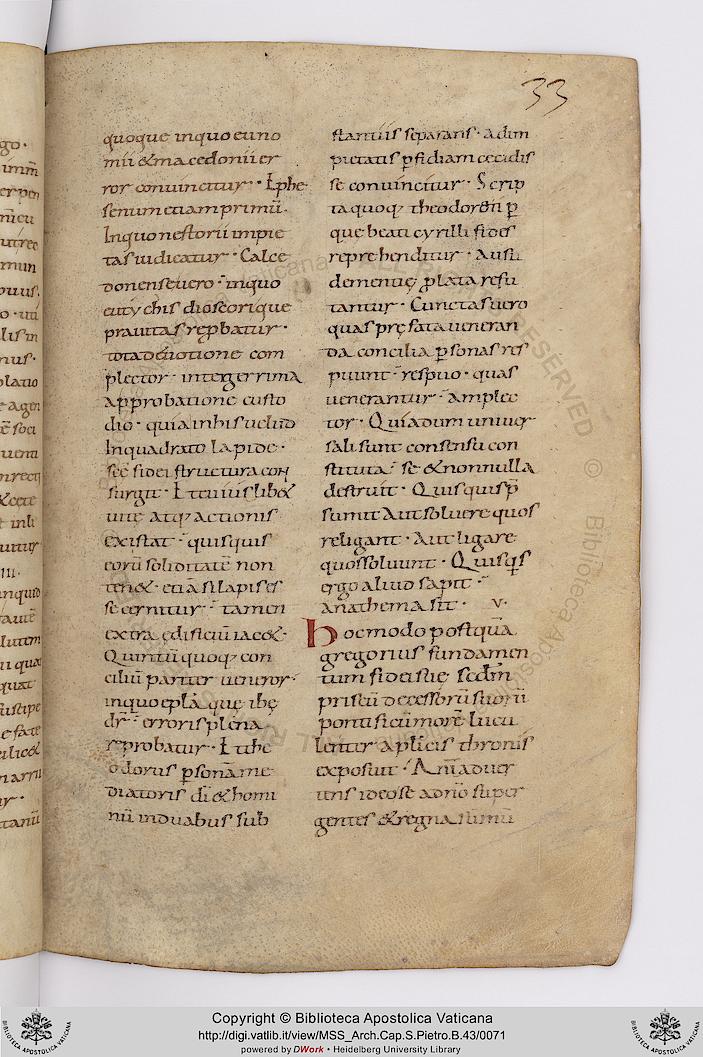 33
quoque inquo euno
mii &macedonii er
ror conuincitur · Ephe
senum etiam primū·
Inquo nestorii impie
tas iudicatur · Calce
donense uero · inquo
euty chis dioscorique
prauitas rep̱batur ·
tota deuotione com
plector · integerrima
approbatione custo
dio · quia inhis uelud
Inquadrato lapide ·
sc̄e fidei structura con
surgit · & cuius lib&
uitę atq; actionis
existat · quisquis
eorū soliditatē non
ten& · etiā si lapis es
se cernitur · tamen
extra ędificiū iac& ·
Quintū quoq; con
ciliū pariter ueneror ·
inquo epl̄a quę ibę
dr̄ · erroris plena
reprobatur · & the
odorus p̱sonā me
diatoris dī & homi
nū induabus sub
stantiis separans · adim
pietatis p̱fidiam cecidis
se conuincitur · Scrip
ta quoq; theodoreti p̱
que beati cyrilli fides
reprehenditur · Ausu
dementię p̱lata refu
tantur · Cunctas uero
quas pręfata ueneran
da concilia p̱sonas res
puunt · respuo · quas
uenerantur · amplec
tor · Quia dum uniuer
sali sunt consensu con
stituta · se & non nulla
destruit · Quisquis p̄
sumit Aut soluere quos
religant · Aut ligare
quos soluunt · Quisq̱s
ergo aliud sapit ·
anathema sit · v·
hoc modo postquā
gregorius fundamen
tum fidei suę scdm̄
priscū decessorū suorū
pontificū morē lucu
lenter aplicis thronis
exposuit · Animaduer
tens ideo se a dn̄o super
gentes & regna sumū
Copyright © Biblioteca Apostolica Vaticana
http://digi.vatlib.it/view/MSS_Arch.Cap.S.Pietro.B.43/0071
powered by DWork • Heidelberg University Library